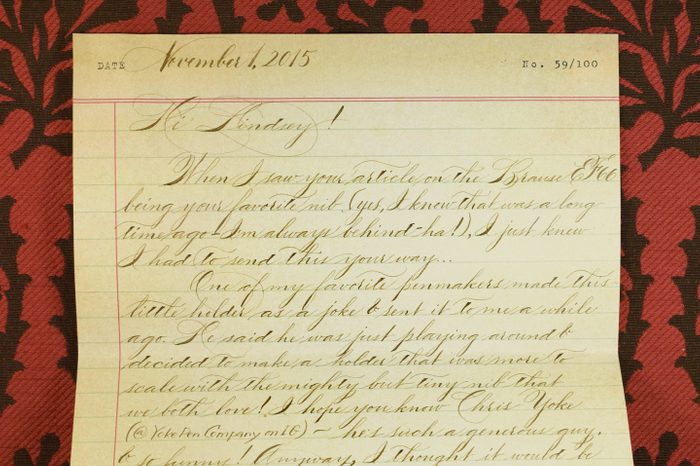 DATE November 1, 2015 No. 59/100
Hi Lindsey!
When I saw your article on the Brause EF66
being your favorite nib (yes, I know that was a long
time ago - I'm always behind - ha!), I just knew
I had to send this your way...
One of my favorite penmakers made this
little holder as a joke & sent it to me a while
ago. He said he was just playing around &
decided to make a holder that was more to
scale with the mighty but tiny nib that
we both love! I hope you know Chris Yoke
(@ Yoke Pen Company on IG) ~ he's such a generous guy,
& so funny! Anyway, I thought it would be